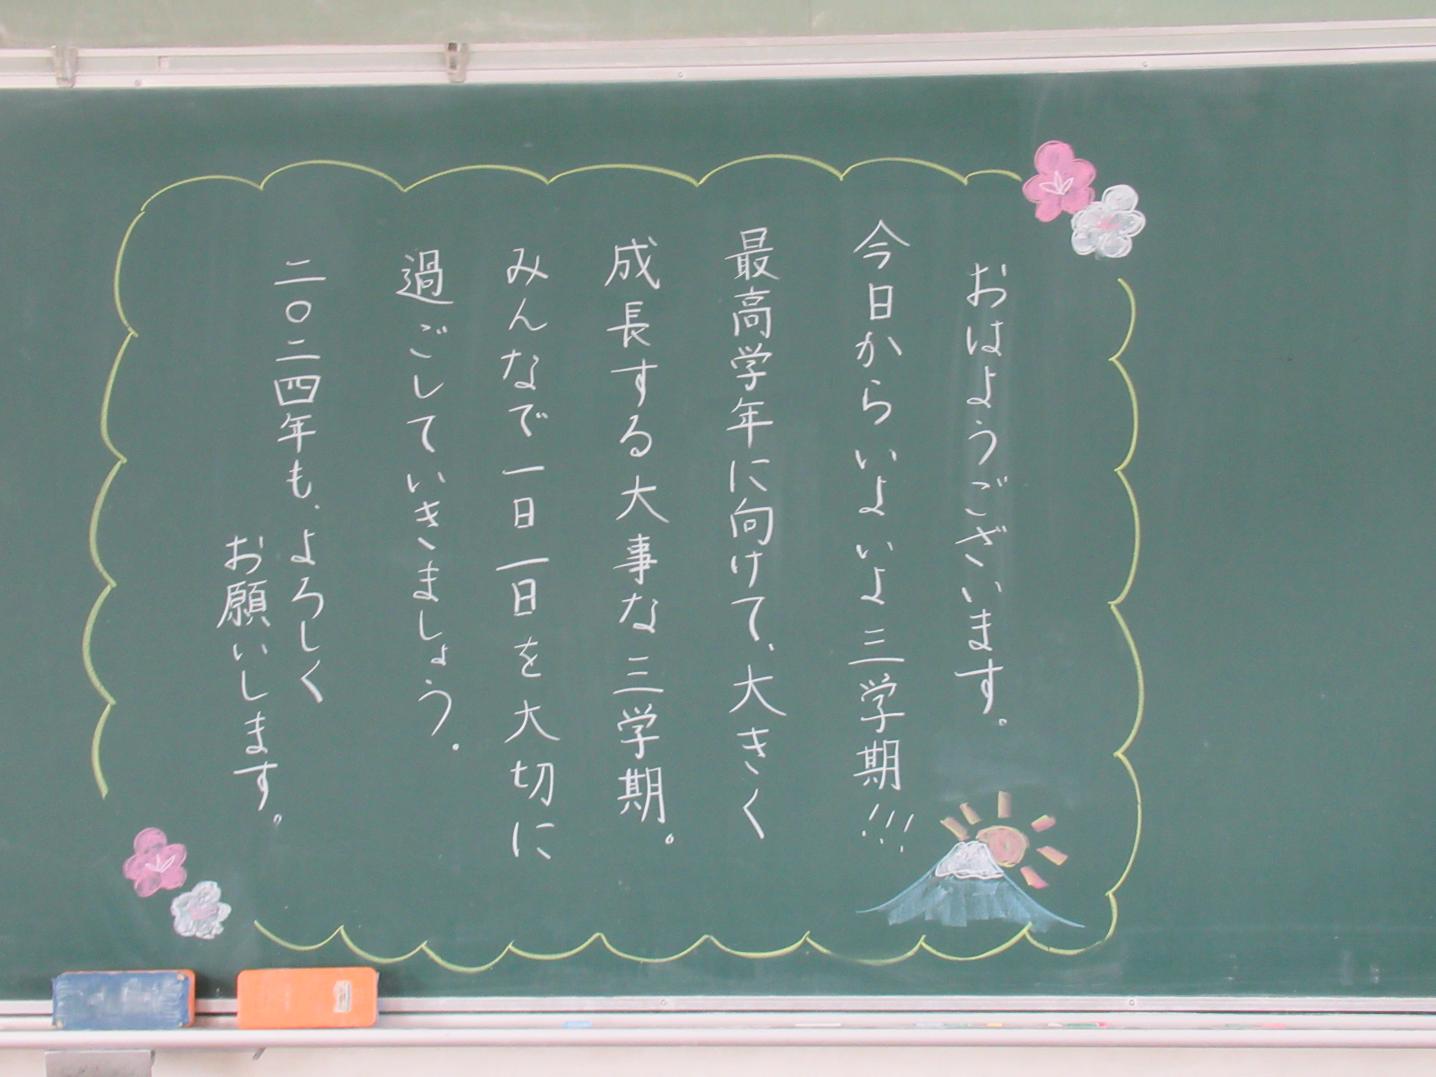 おはようございます。
今日からいよいよ三学期!!!
最高学年に向けて、大きく
成長する大事な三学期。
みんなで一日一日を大切に
過ごしていきましょう。
二〇二四年も、よろしく
お願いします。